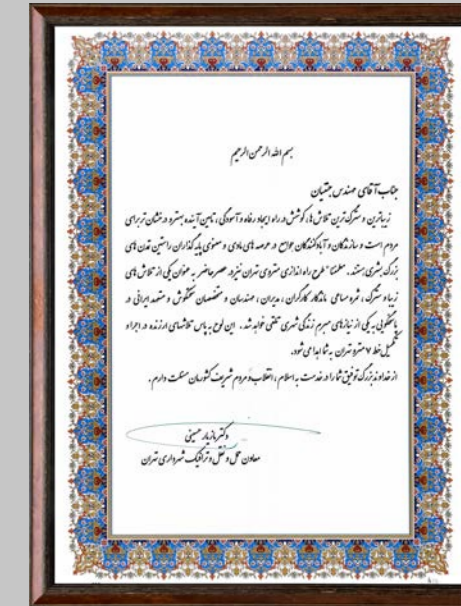 بسم الله الرحمن الرحیم
جناب آقای مهندس جنتیان
زیباترین و سترگ ترین تلاش ها، کوشش در راه ایجاد رفاه و آسودگی، تامین آینده بهتر و درخشان تر برای
مردم است و سازندگان و آبادکنندگان جوامع در عرصه های مادی و معنوی پایه گذاران راستین تمدن های
بزرگ بشری هستند. مطمئنا" طرح راه اندازی متروی تهران نیز در عصر حاضر به عنوان یکی از تلاش های
زیبا و سترگ، ثمره مساعی ماندگار کارگران، مدیران، مهندسان و متخصصان سختکوش و متعهد ایرانی در
پاسخگویی به یکی از نیازهای مبرم زندگی شهری تلقی خواهد شد. این لوح به پاس تلاشهای ارزنده در اجرا و
تکمیل خط ۷ مترو تهران به شما اهدا می شود.
از خداوند بزرگ توفیق شما را در خدمت به اسلام، انقلاب و مردم شریف کشورمان مسئلت دارم.
دکتر مازیار حسینی
معاون حمل و نقل و ترافیک شهرداری تهران